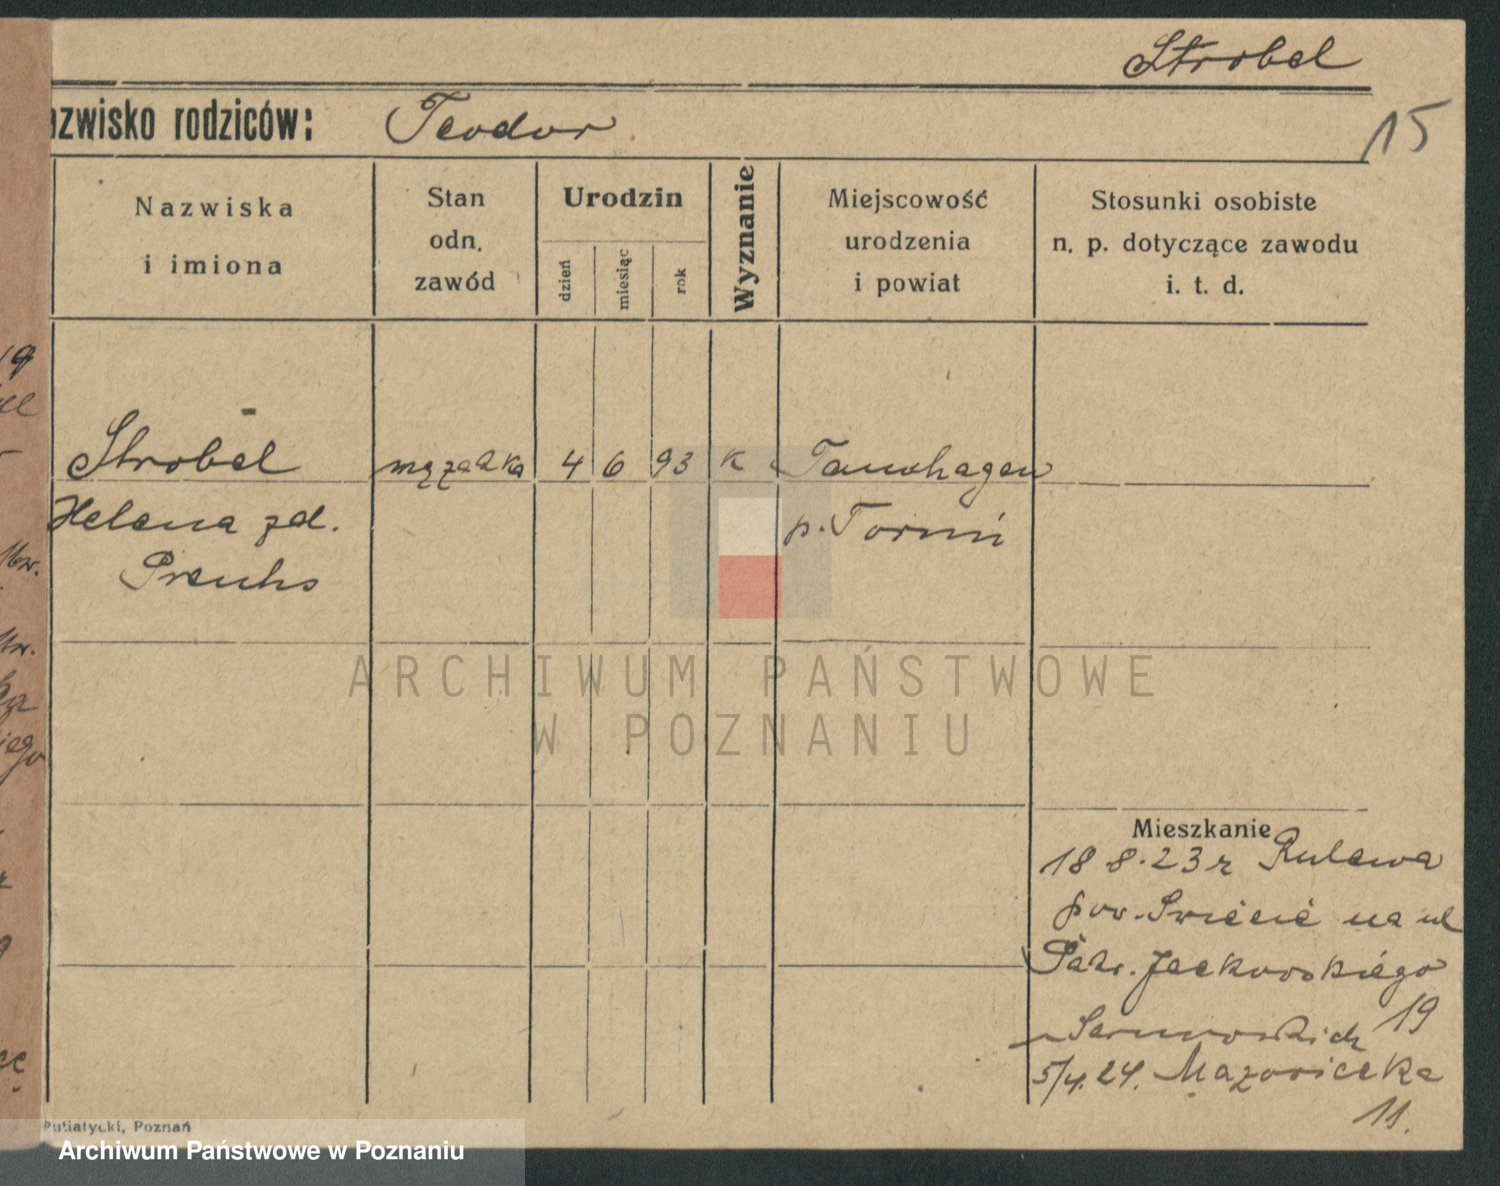 Strobel
azwisko rodziców: Teodor
15
Nazwiska
i imiona
Stan
odn.
zawód
Urodzin
dzień
miesiąc
rok
Wyznanie
Miejscowość
urodzenia
i powiat
Stosunki osobiste
n. p. dotyczące zawodu
i. t. d.
19
Strobel
Helena zd.
Preuhs
mężadka
4
6
93
k
Tannhagen
p. Toruń
ARCHIWUM PAŃSTWOWE
W POZNANIU
Mieszkanie
18 8. 23 r Rulewa
pow. Świecie na ul
Patr. Jackowskiego
19
5/4. 24. Mazowiecka
11.
Putiatycki, Poznań
Archiwum Państwowe w Poznaniu